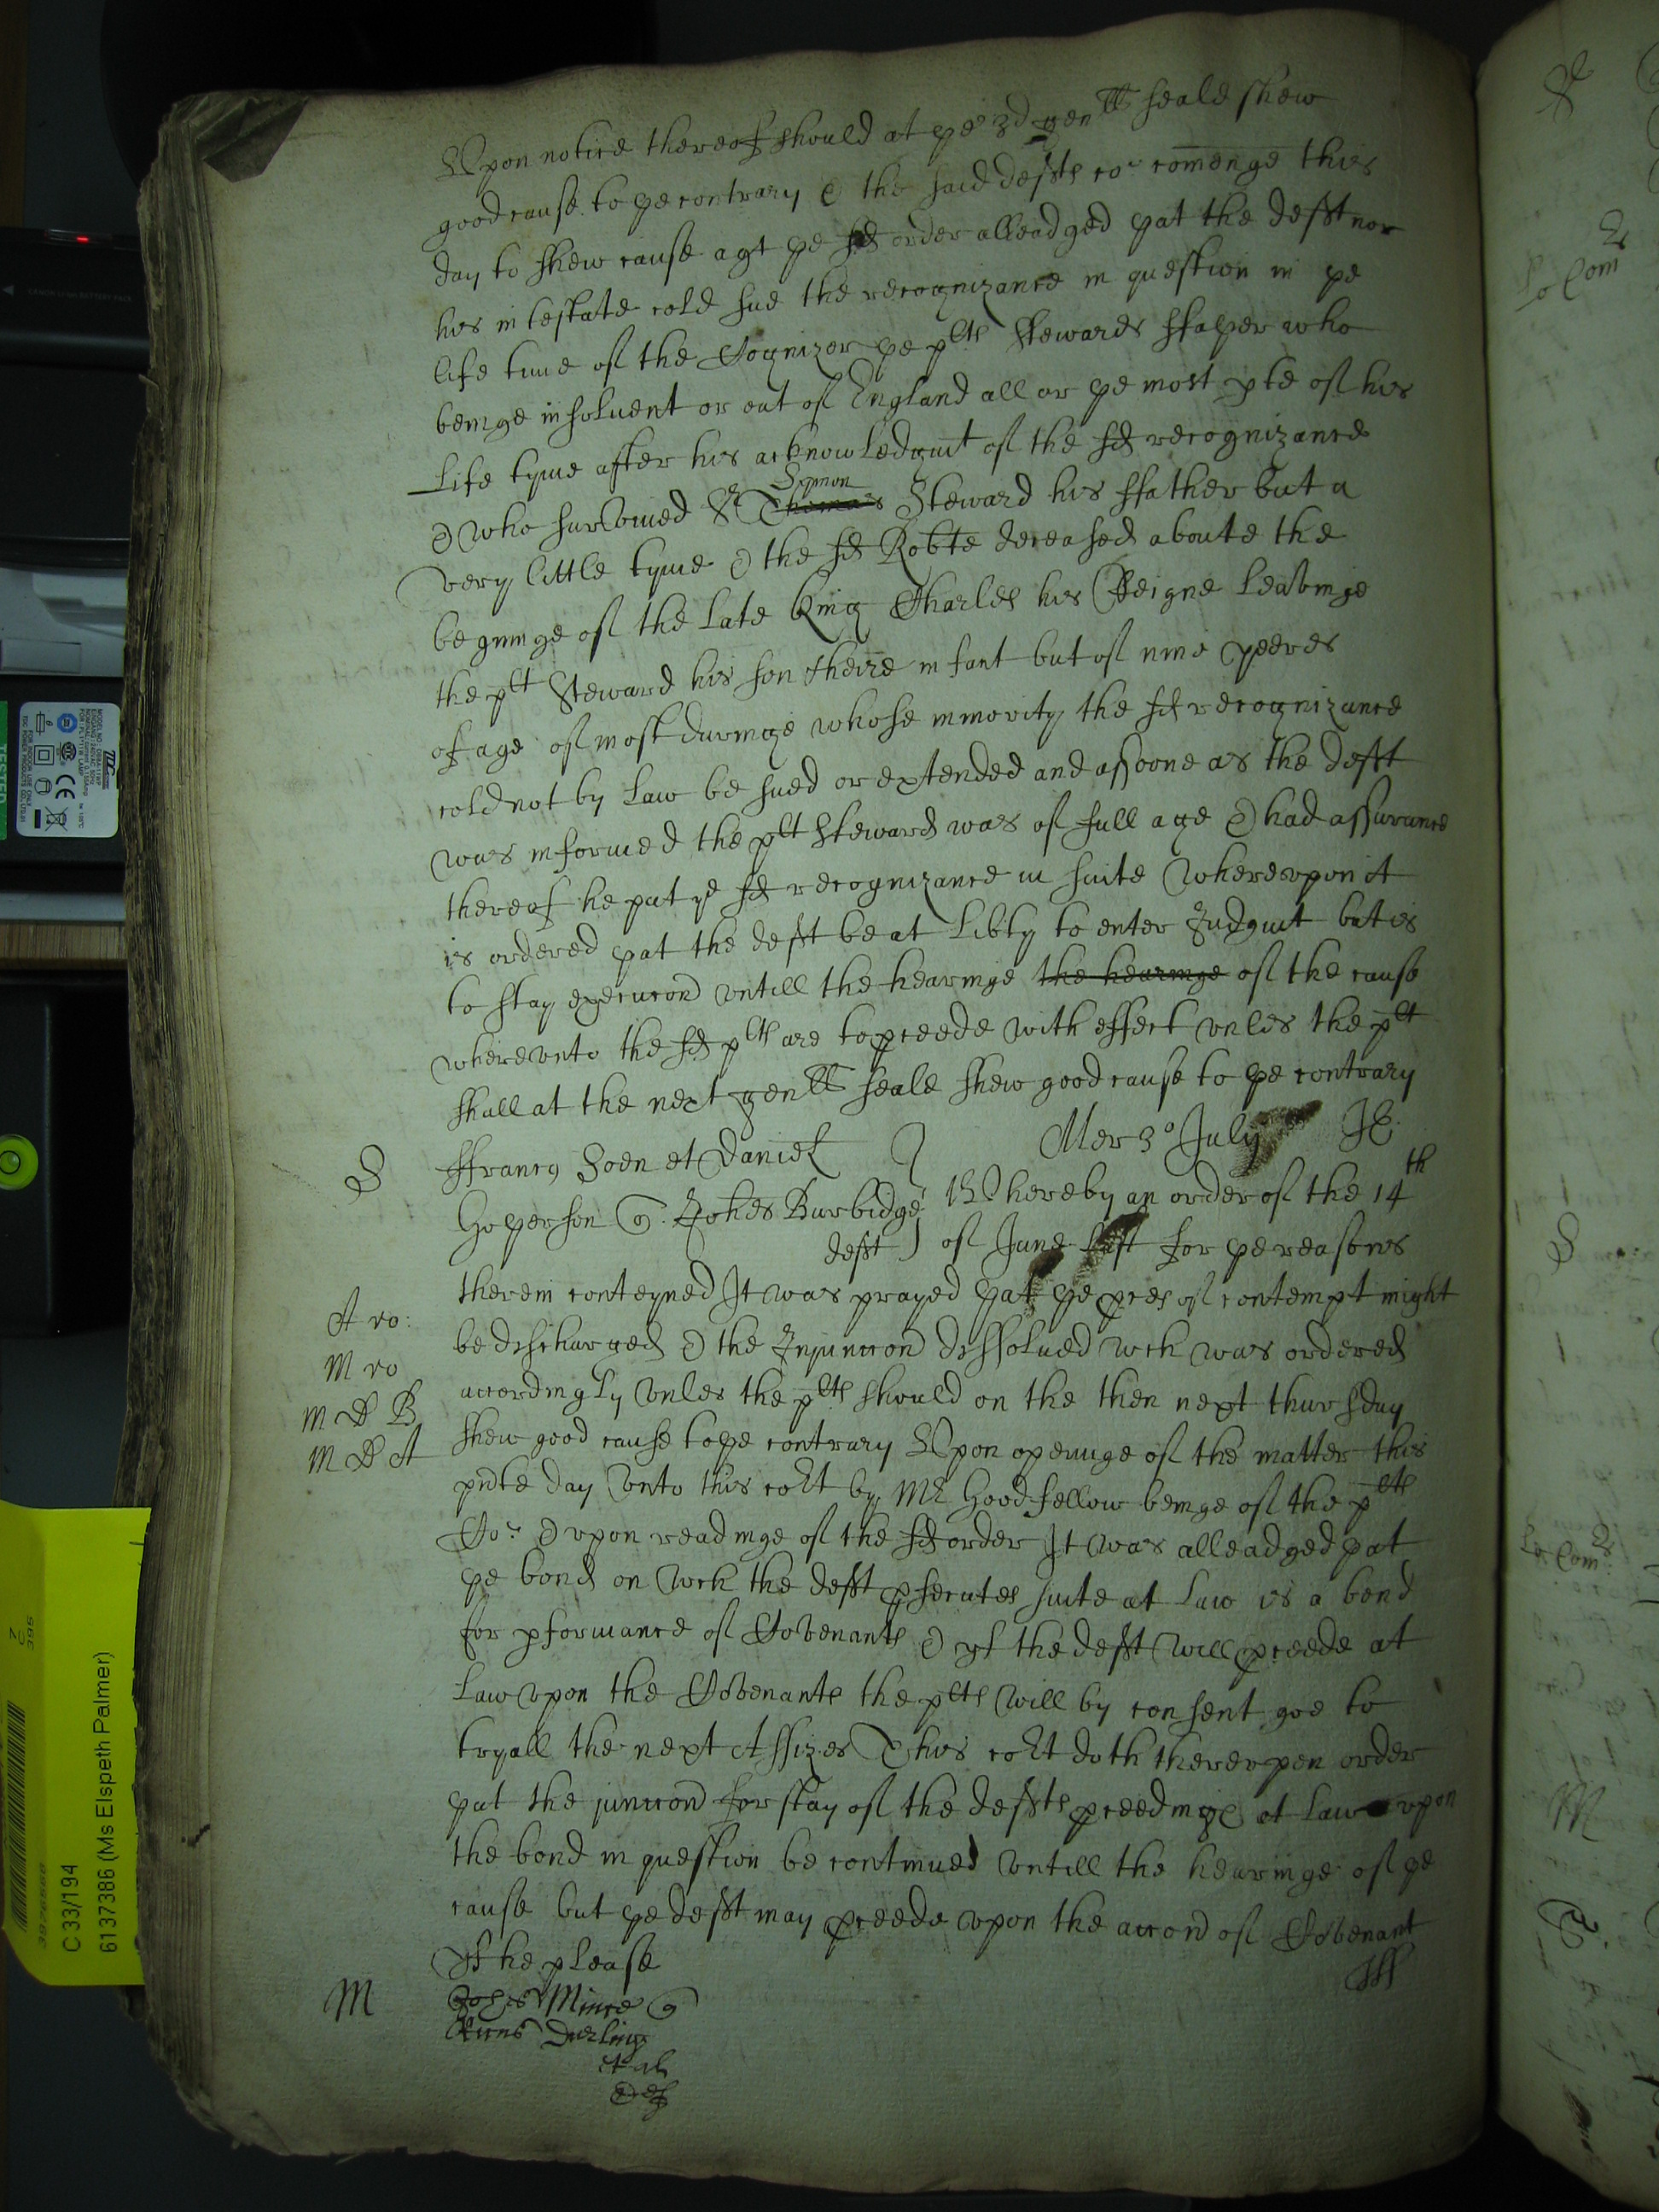 Upon notice thereof should at ye 3d genll seale shew
good cause to ye contrary & the said defts co: cominge this
day to shew cause agt ye sd order alleadged yat the deft nor
his intestate cold sue the recognizance in question in ye
life time of the Cognizor ye plts Stewards ffather who
beinge insolvent or out of England all or ye most pte of his
Life tyme after his acknowledgmt of the sd recognizance
& who survived Sr Thomas Symon Steward his ffather but a
very little tyme & the sd Robte deceased aboute the
begininge of the Late King Charles his Reigne Leavinge
the plt Steward his son & heire infant but of nine yeeres
of age of most duringe whose minority the sd recognizance
cold not by Law be sued or extended and assoone as the deft
was informed the plt Steward was of full age & had assurance
thereof he put ye sd recognizance in suite Whereupon it
is ordered yat the deft be at Libty to enter Judgmt but is
to stay execucon untill the hearinge the hearinge of the cause
whereunto the sd plts are to pceede with effect unles the plt
shall at the next genll seale shew good cause to ye contrary
Mer 3o July JE
S ffrancs Soen et Daniel
Hoperson q. Johes Burbidge Whereby an order of the 14th
deft of June Last for ye reasons
therein conteyned It was prayed yat ye pces of contempt might
A ro:
be discharged & the Injuncon dissolved wch was ordered
M ro
accordingly unles the plts should on the then next thursday
M D B
shew good cause to ye contrary Upon openinge of the matter this
M D A
pnte day unto this cort by Mr Goodfellow beinge of the plts
Co: & upon readinge of the sd order It was alleadged yat
ye bond on wch the deft psecutes suite at Law is a bond
for pformance of Covenants & yf the deft will pceede at
Law upon the Covenants the plts will by consent goe to
tryall the next Assizes This cort doth thereupon order
yat the juncon for stay of the defts pceedings at Law upon
the bond in question be continued untill the hearinge of ye
cause but ye deft may pceede upon the accon of Covenant
yf he please
M
Mince q
Darling
et al
def
C 33/194
6137386 (Ms Elspeth Palmer)
TESTED